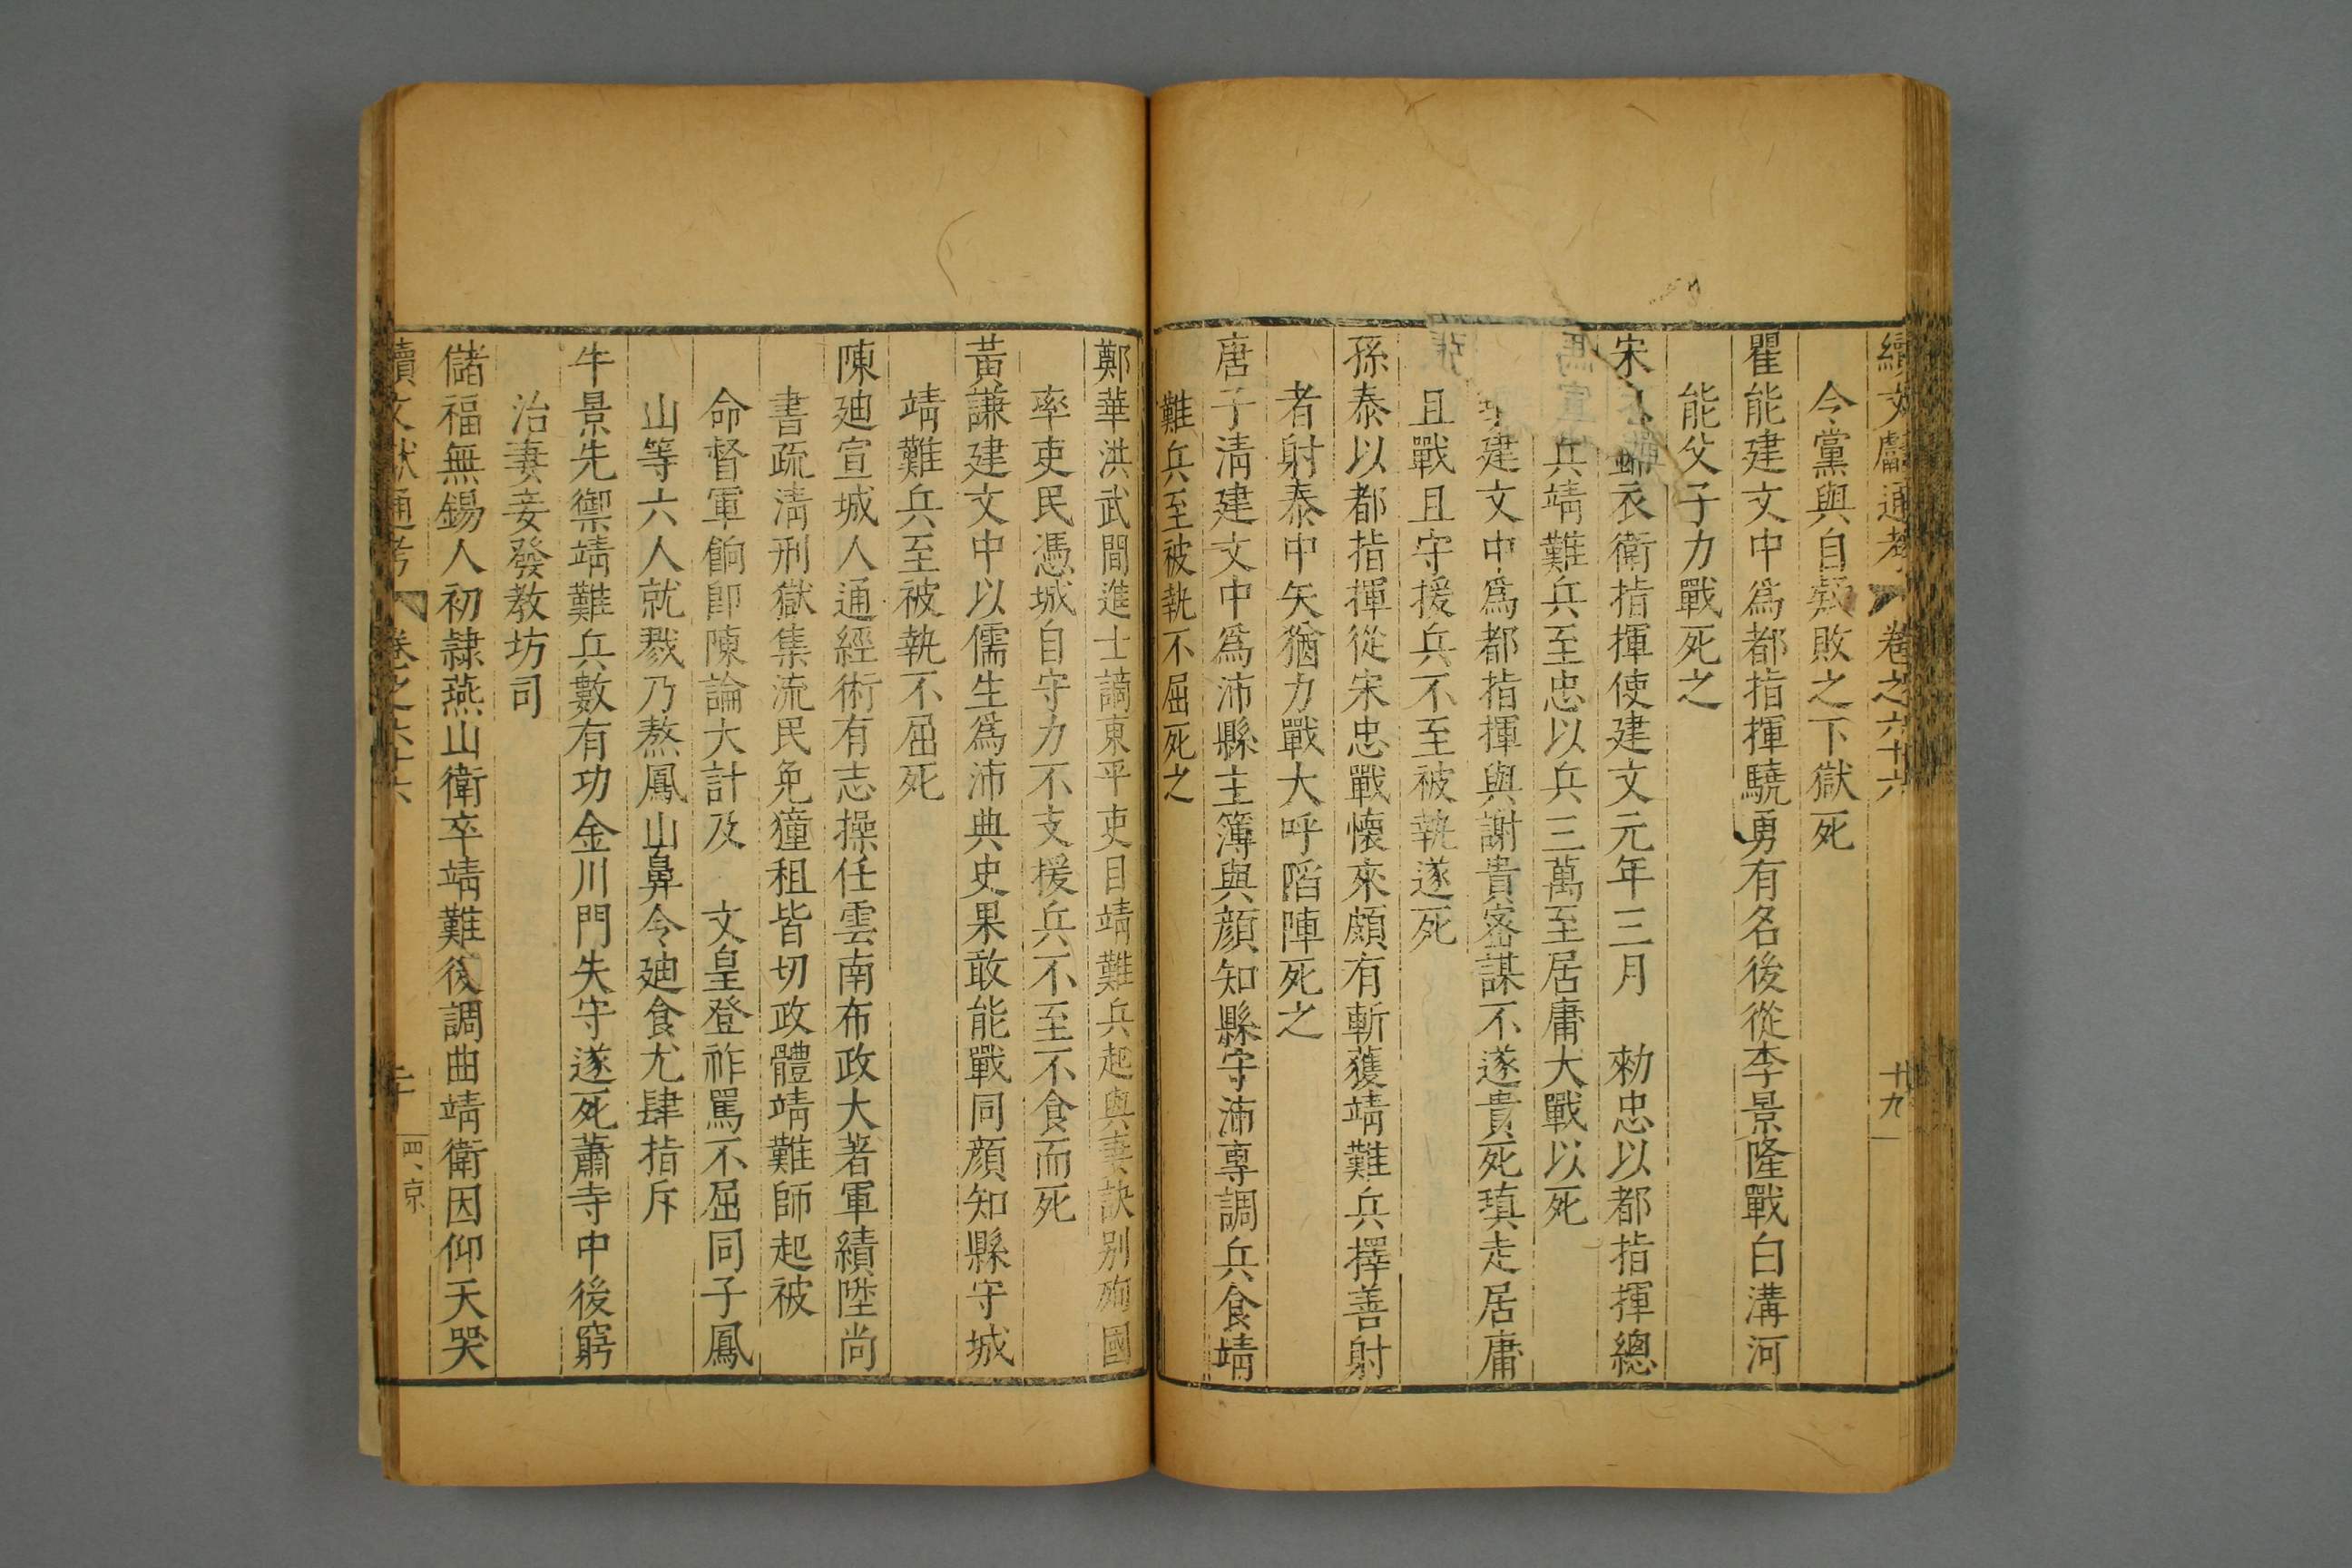 續文獻通考 卷之六十六 十九
今黨與自疑敗之下獄死
瞿能建文中爲都指揮驍勇有名後從李景隆戰白溝河
能父子力戰死之
宋 錦衣衛指揮使建文元年三月 勑忠以都指揮總
兵靖難兵至忠以兵三萬至居庸大戰以死
建文中爲都指揮與謝貴密謀不遂貴死瑱走居庸
且戰且守援兵不至被執遂死
孫泰以都指揮從宋忠戰懷來頗有斬獲靖難兵擇善射
者射泰中矢猶力戰大呼陷陣死之
唐子淸建文中爲沛縣主簿與顔知縣守沛專調兵食靖
難兵至被執不屈死之
鄭華洪武間進士謫東平吏目靖難兵起與妻訣别殉國
率吏民憑城自守力不支援兵不至不食而死
黃謙建文中以儒生爲沛典史果敢能戰同顔知縣守城
靖難兵至被執不屈死
陳廸宣城人通經術有志操任雲南布政大著軍績陞尚
書疏淸刑獄集流民免獞租皆切政體靖難師起被
命督軍餉卽陳論大計及 文皇登祚罵不屈同子鳳
山等六人就戮乃熬鳳山鼻令廸食尤肆指斥
牛景先禦靖難兵數有功金川門失守遂死蕭寺中後窮
治妻妾發教坊司
儲福無錫人初隷燕山衛卒靖難後調曲靖衛因仰天哭
續文獻通考 卷之六十六 二十 四、京